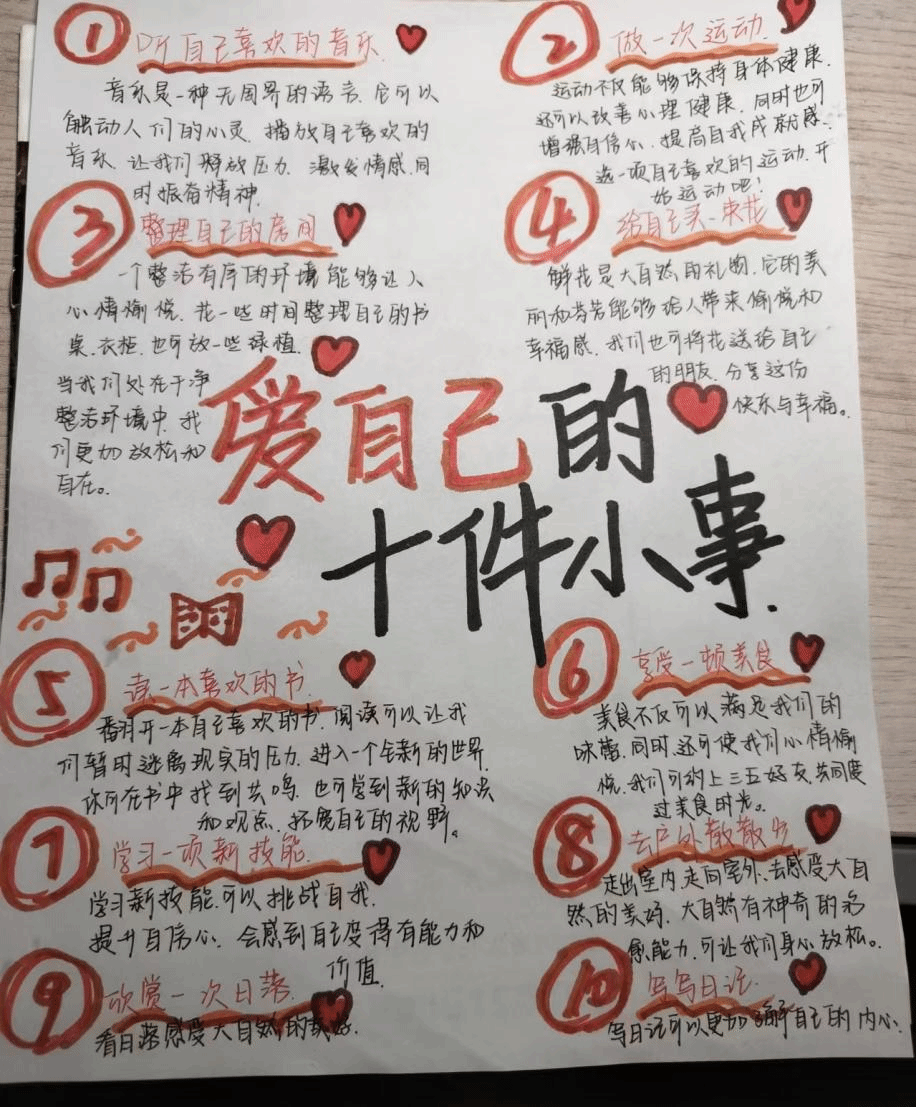 1 听自己喜欢的音乐
音乐是一种无国界的语言.它可以
触动人们的心灵.播放自己喜欢的
音乐.让我们释放压力.激发情感.同
时振奋精神.
2 做一次运动.
运动不仅能够保持身体健康.
还可以改善心理健康.同时也可
增强自信心.提高自我成就感.
选一项自己喜欢的运动.开
始运动吧!
3 整理自己的房间
一个整洁有序的环境能够让人
心情愉悦.花一些时间整理自己的书
桌.衣柜.也可放一些绿植.
当我们处在干净
整洁环境中.我
们更加放松和
自在。
4 给自己买一束花
鲜花是大自然的礼物.它的美
丽和芬芳能够给人带来愉悦和
幸福感.我们也可将花送给自己
的朋友.分享这份
快乐与幸福。
爱自己的
十件小事.
5 读一本喜欢的书.
翻开一本自己喜欢的书.阅读可以让我
们暂时逃离现实的压力.进入一个全新的世界.
你可在书中找到共鸣.也可学到新的知识
和观点.拓宽自己的视野。
6 享受一顿美食
美食不仅可以满足我们的
味蕾.同时.还可使我们心情愉
悦.我们可约上三五好友.共同度
过美食时光。
7 学习一项新技能.
学习新技能.可以挑战自我.
提升自信心.会感到自己变得有能力和
价值.
8 去户外散散步
走出室内.走向室外.去感受大自
然的美好.大自然有神奇的治
愈能力.可让我们身心放松。
9 欣赏一次日落.
看日落感受大自然的美好.
10 写写日记.
写日记可以更加了解自己的内心.